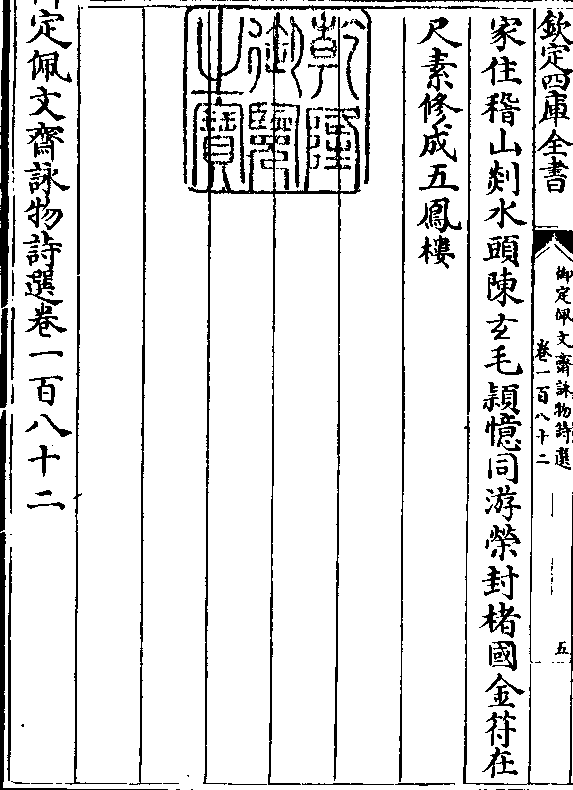 欽定四庫全書
御定佩文齋詠物詩選
卷一百八十二
五
家住稽山剡水頭陳玄毛穎憶同游榮封楮國金符在
尺素修成五鳳樓
乾隆
御覽
之寶
定佩文齋詠物詩選卷一百八十二